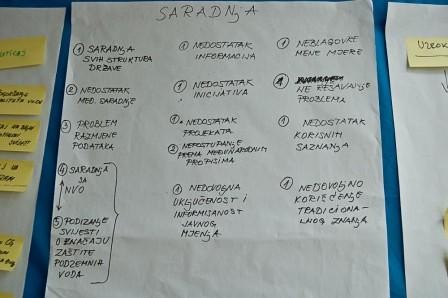 SARADNJA
1 SARADNJA
SVIH STRUKTURA
DRŽAVE
2 NEDOSTATAK
MEĐ. SARADNJE
3 PROBLEM
RAZMJENE
PODATAKA
4 SARADNJA
SA
NVO
5 PODIZANJE
SVIJESTI
O ZNAČAJU
ZAŠTITE
PODZEMNIH
VODA
1 NEDOSTATAK
INFORMACIJA
1 NEDOSTATAK
INICIJATIVA
1. NEDOSTATAK
PROJEKATA
2 NEPOSTUPANJE
PREMA MEĐUNARODNIM
PROPISIMA
1 NEDOVOLJNA
UKLJUČENOST I
INFORMISANOST
JAVNOG
MJENJA
1 NEBLAGOVRE
MENE MJERE
1
NE REŠAVANJE
PROBLEMA
1 NEDOSTATAK
KORISNIH
SAZNANJA
1 NEDOVOLJNO
KORIŠĆENJE
TRADICIONA-
LNOG ZNANJA
UZROK